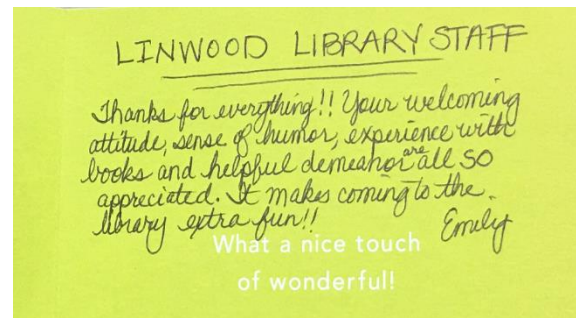 LINWOOD LIBRARY STAFF
Thanks for everything!! Your welcoming
attitude, sense of humor, experience with
books and helpful demeanor are all so
appreciated. It makes coming to the
library extra fun!! Emily
What a nice touch
of wonderful!